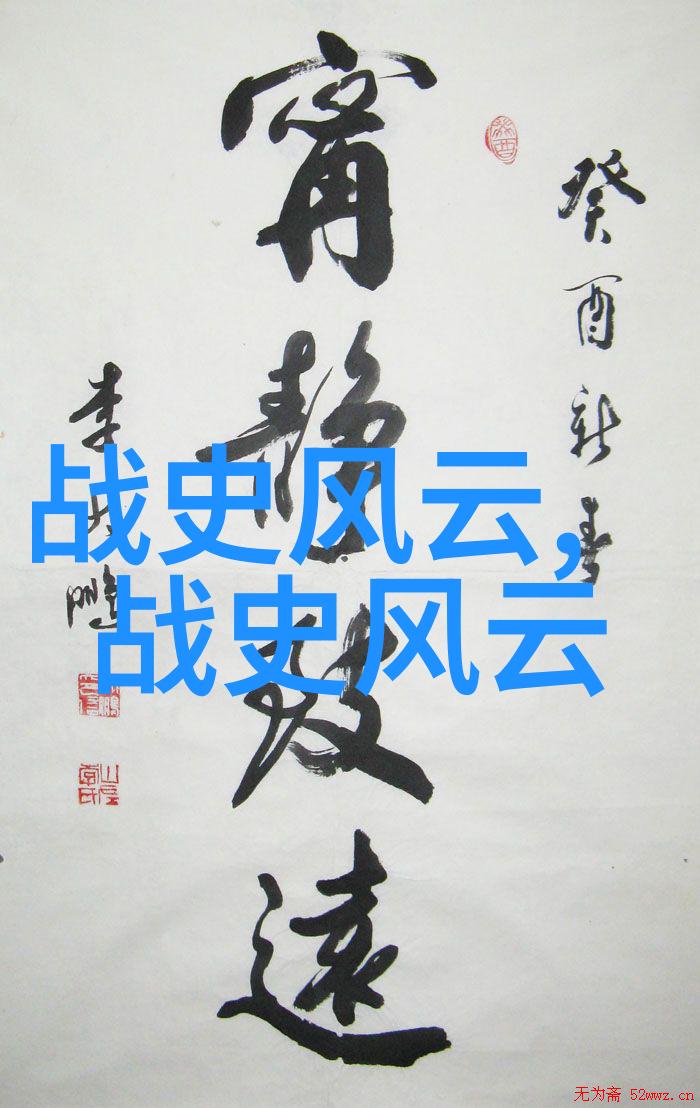 癸酉新春
甯靜致遠
李
战史风云,
战史风云
无为斋 52wwz.cn